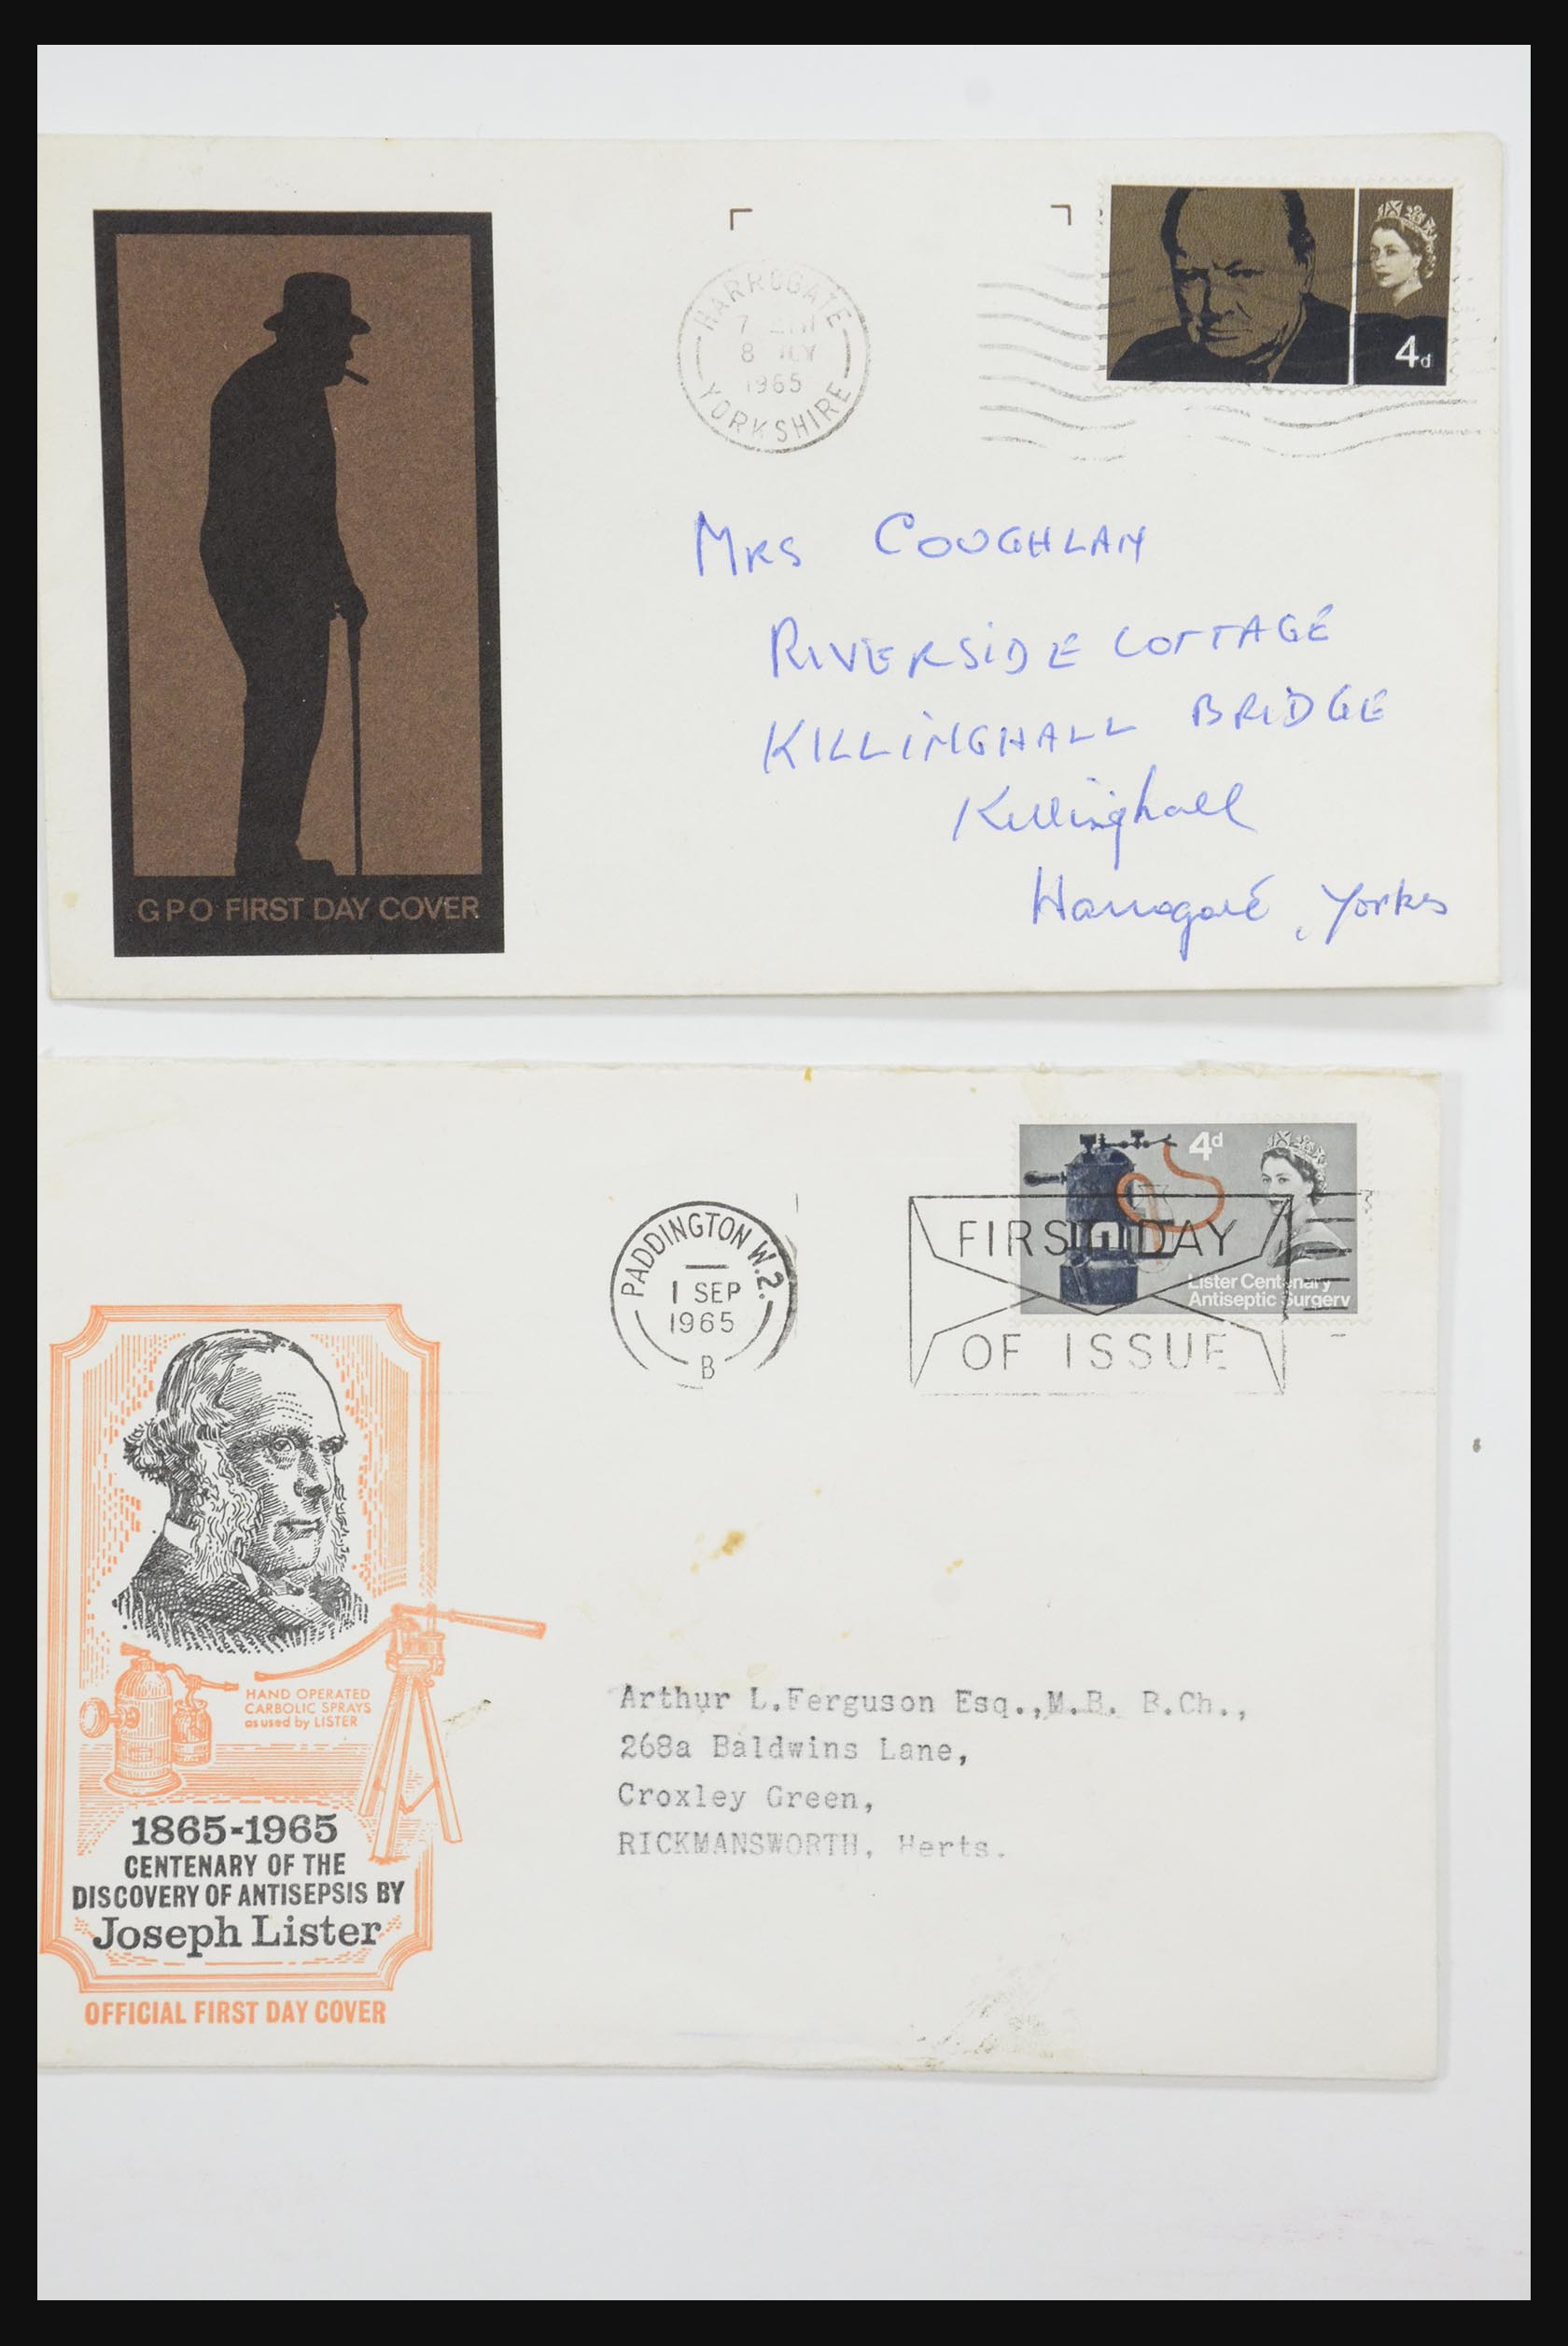 GPO FIRST DAY COVER
HARROGATE
8 JLY
1965
YORKSHIRE
4d
MRS COUGHLAN
RIVERSIDE COTTAGE
KILLINGHALL BRIDGE
Killinghall
Harrogate, Yorks
PADDINGTON W.2.
1 SEP
1965
B
4d
Lister Centenary
Antiseptic Surgery
FIRST DAY
OF ISSUE
HAND OPERATED
CARBOLIC SPRAYS
as used by LISTER
1865-1965
CENTENARY OF THE
DISCOVERY OF ANTISEPSIS BY
Joseph Lister
OFFICIAL FIRST DAY COVER
Arthur L.Ferguson Esq.,M.B. B.Ch.,
268a Baldwins Lane,
Croxley Green,
RICKMANSWORTH, Herts.